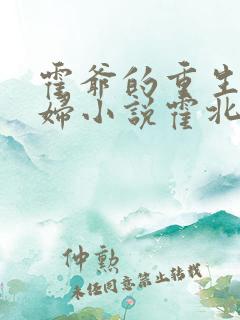 霍爷的重生
妇小说霍北
仲勲
未经同意禁止转载